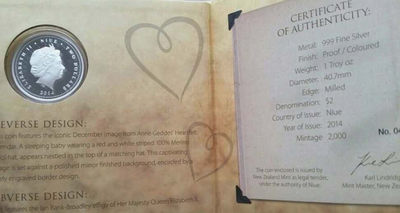 ELIZABETH II • NIUE • TWO DOLLARS
2014
EVERSE DESIGN:
coin features the iconic December image from Anne Geddes' Heartfelt
endar. A sleeping baby wearing a red and white striped 100% Merino
ol hat, appears nestled in the top of a matching hat. This captivating
age is set against a polished mirror finished background, encircled by a
ely engraved border design.
BVERSE DESIGN:
features the Ian Rank-Broadley effigy of Her Majesty Queen Elizabeth II
CERTIFICATE
OF AUTHENTICITY:
Metal: .999 Fine Silver
Finish: Proof / Coloured
Weight: 1 Troy oz
Diameter: 40.7mm
Edge: Milled
Denomination: $2
Country of Issue: Niue
Year of Issue: 2014
Mintage: 2,000
No. 04
The coin enclosed is issued by
New Zealand Mint as legal tender,
under the authority of Niue.
Karl Lindridg
Mint Master, New Zea